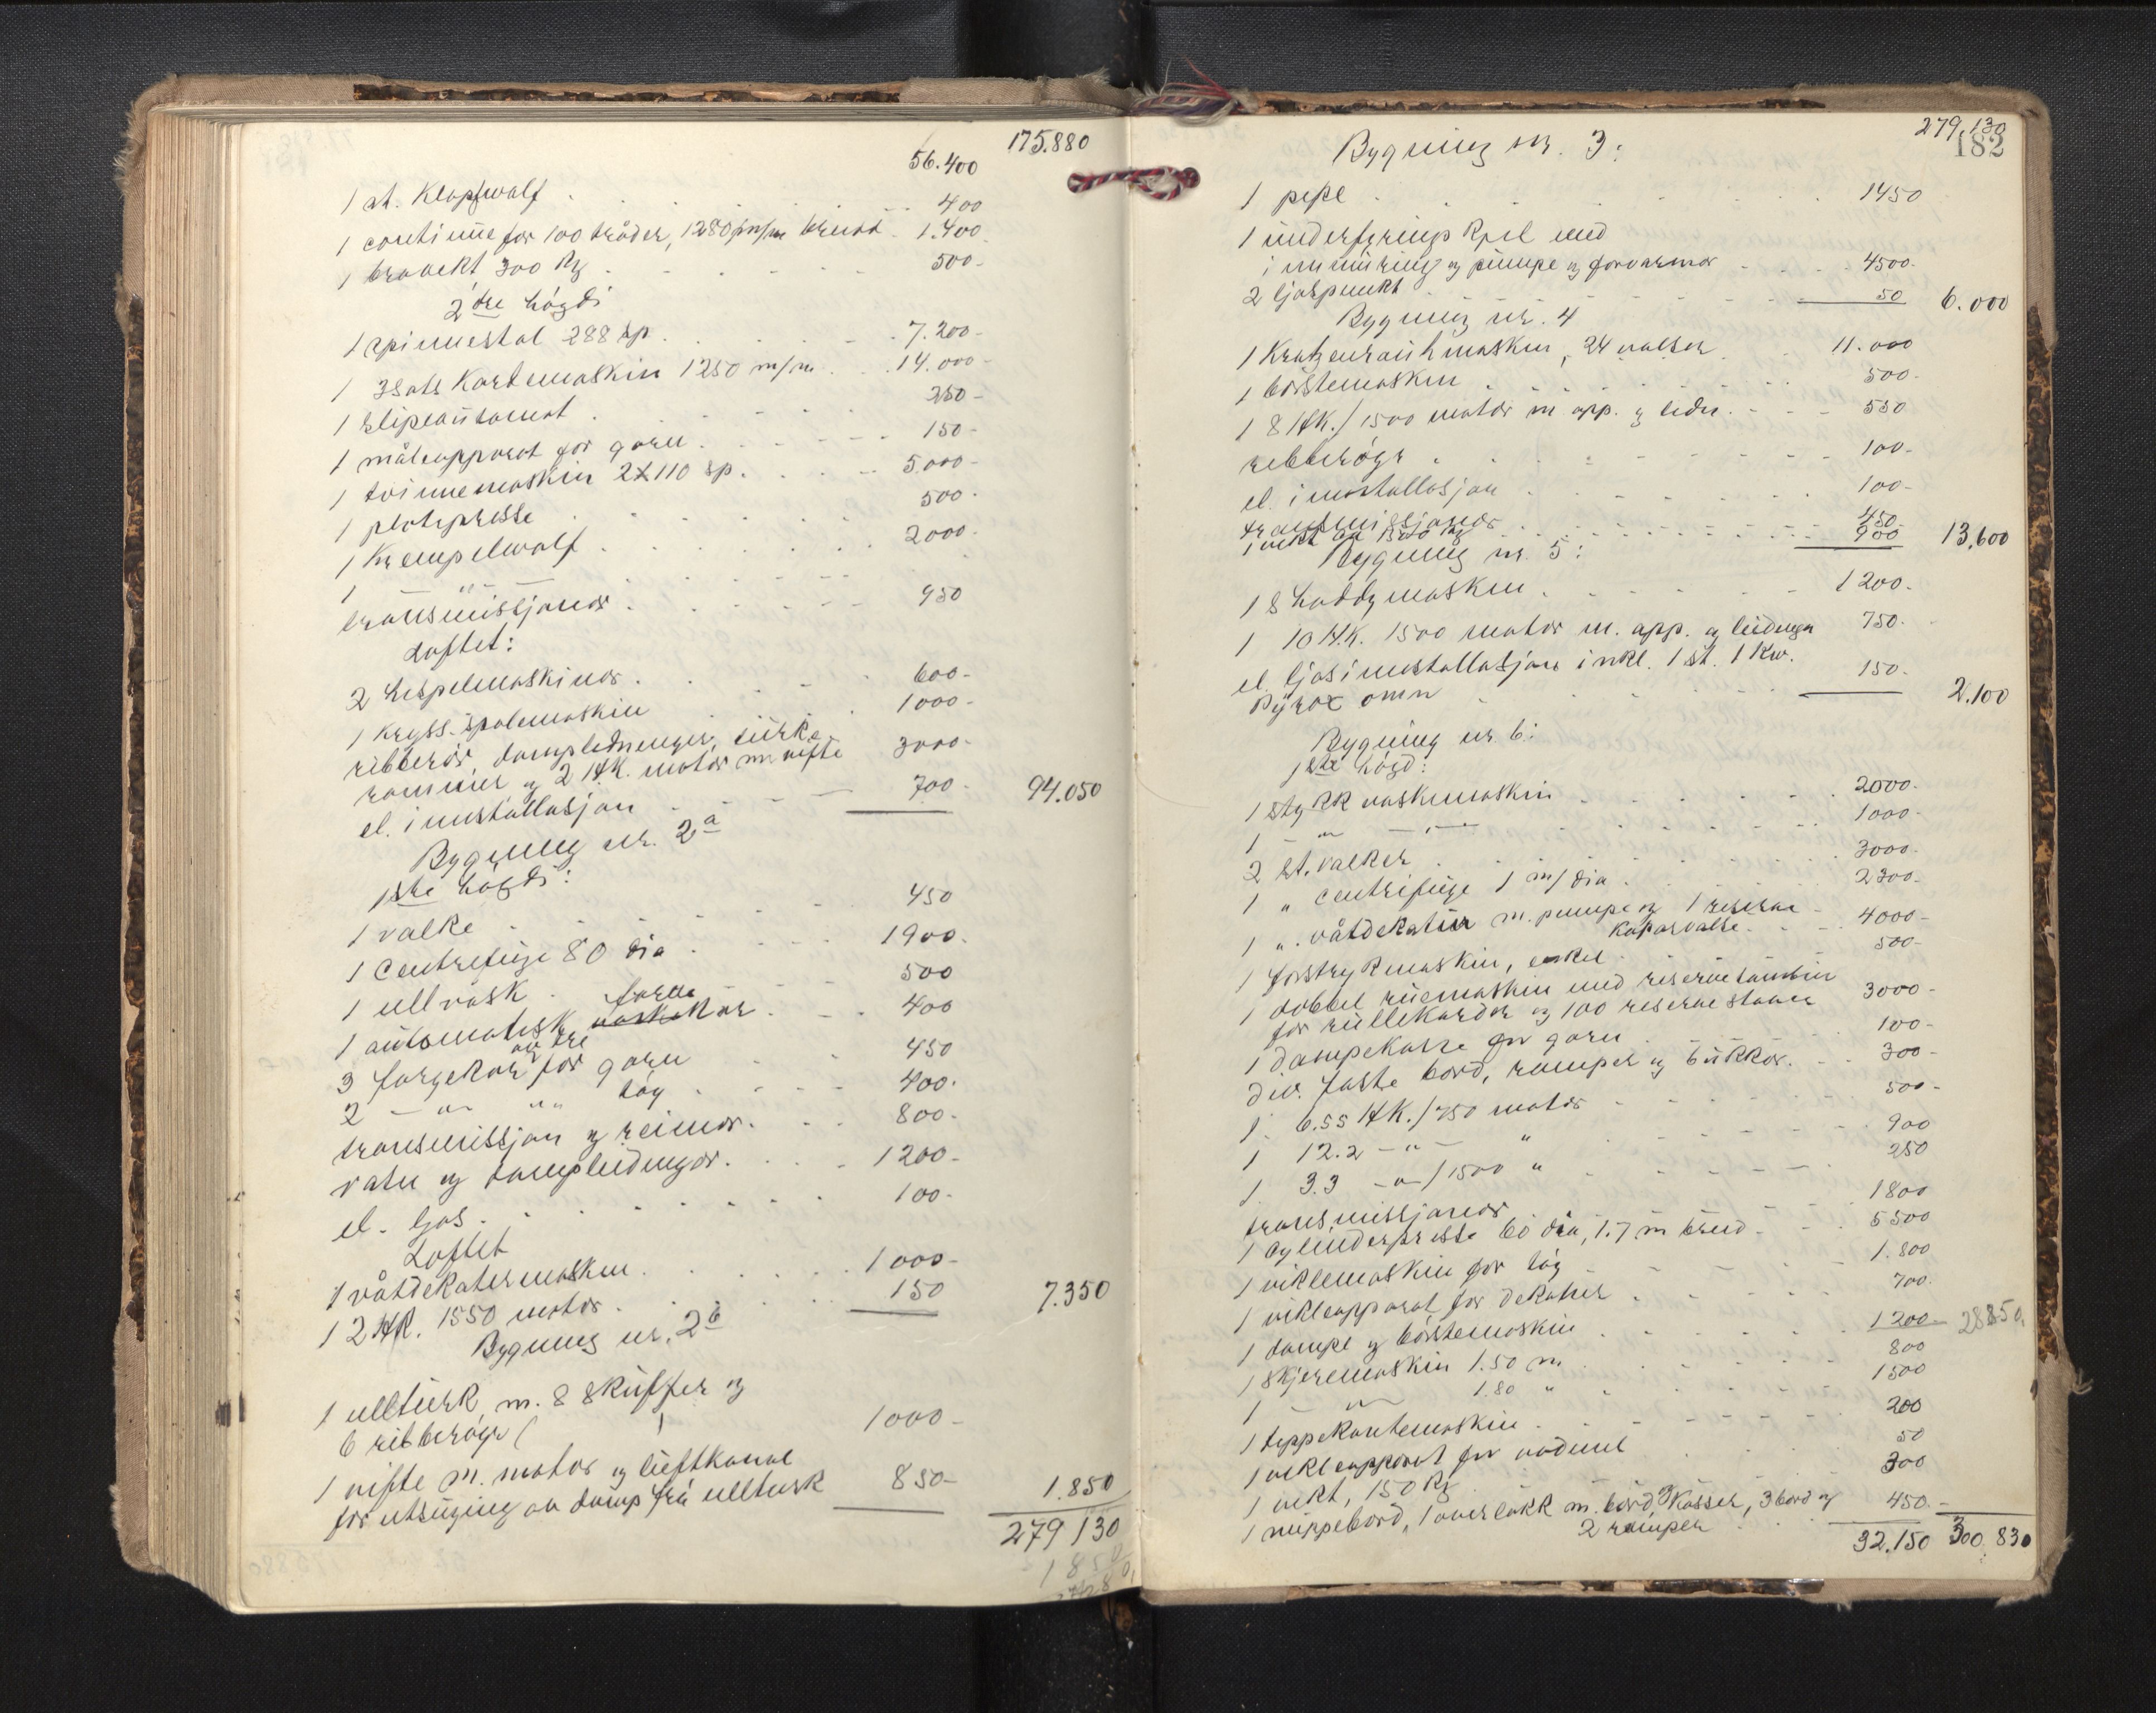 175.880
56.400
1 st. Klopfwolf . . . . 400
1 continue for 100 tråder, 1280 m/m breidd . 1.400.
1 bruvekt 300 kg . . . . . 500-
2dre högdi
1 spinnestol 288 sp. . . . . 7.200-
1 3sats Kardemaskin 1250 m/m . . . 14.000-
1 slipeautomat . . . . . 250-
1 måleapparat for garn . . . . . 150-
1 tvinnemaskin 2x110 sp. . . . 5.000-
1 plotepresse . . . . . 500.
1 Krempelwolf . . . . . 2000.
1 — " —
transmissjonar . . . . . 950
Loftet:
2 hespelmaskinor . . . . . 600-
1 kryss-spolemaskin . . . 1000-
ribberör, dampledninger, türke-
rammer og 2 HK. motor m vifte 3000.
el. innstallasjon . . . . 700- 94.050
Bygning nr. 2a
1ste högdi:
1 valke . . . . . 450
1 Centrefuge 80 dia . . . . 1900.
1 ullvask . . . . . 500
1 automatisk farge kar . . . 400
3 fargekar av tre for garn . . . 450
2 — " — " tög . . . . 400.
transmissjon og reimar . . . 800-
vatn og dampleidningar . . . . 1200-
el. ljos . . . . . . 100-
Loftet
1 våtdekatermaskin . . . . . 1000-
1 2 HK. 1550 motor . . . . . 150 7.350
Bygning nr. 2b
1 ulltürk m. 8 skuffer og
6 ribberöyr 1000-
1 vifte m. motor og lüftkanal
for utsuging av damp frå ullturk 850- 1.850
279 130
1850
279.130
182
Bygning nr. 3:
1 pipe . . . . . . 1450
1 underfyrings kjel med
innmuring og pumpe og forvarmar . . . 4500.
2 ljospunkt . . . . . . 50 6.000
Bygning nr. 4
1 Kratzenrauhmaskin, 24 valser . . 11.000
1 börstemaskin . . . . . . 500.
1 8 HK./1500 motor m app. og ledn. . . . 550
ribberöyr . . . . . . 100-
el. innstallasjon . . . . . 100-
transmissjonar . . . . . . 450-
1 vekt . . . . . . 900 13,600
Bygning nr. 5:
1 Shoddymaskin . . . . . . 1200.
1 10 H.K. 1500 motor m. app. og leidnger 750.
el. ljosinnstallasjon inkl. 1 st. 1 Kw.
Pyrox omn . . . . . 150. 2.100
Bygning nr 6:
1ste högd:
1 stykk vaskemaskin . . . . . 2000.
1 — " — " — . . . . . 1000-
2 st. valker . . . . . . 3000.
1 " centrifuge 1 m/dia . . . . 2300.
1 " våtdekatür m. pumpe og 1 reserve
koparvalse . . 4000-
1 forstrykmaskin, enkel . . . . 500-
1 dobbel rüemaskin med reservetambur
for rullekarder og 100 reserve staver 3000-
1 dampekasse for garn . . . . 100-
div. faste bord, ramper og bukkar. . . 300-
1 6.55 HK./750 motor . . . . . 500-
1 12.2 — " — " . . . . . 900
1 3.3 — " —/1500 " . . . . . 250
transmissjonar . . . . . 1800
1 cylinderpresse 60 dia, 1.7 m breid . . . 5500
1 viklemaskin for töy . . . . . 1.800
1 vikleapparat for dekatur . . . . 700.
1 dampe og börstemaskin . . . . . 1200- 28850,
1 skjeremaskin 1.50 m . . . . . 800
1 — " — 1.80 " . . . . . 1500
1 teppekantemaskin . . . . . 200
1 vikleapparat for vadmel . . . 50
1 vekt, 150 kg . . . . . 300
1 nuppebord, 1 overlokk m. bord og kasser, 3 bord og
2 ramper . . . 450.-
32.150 300.830